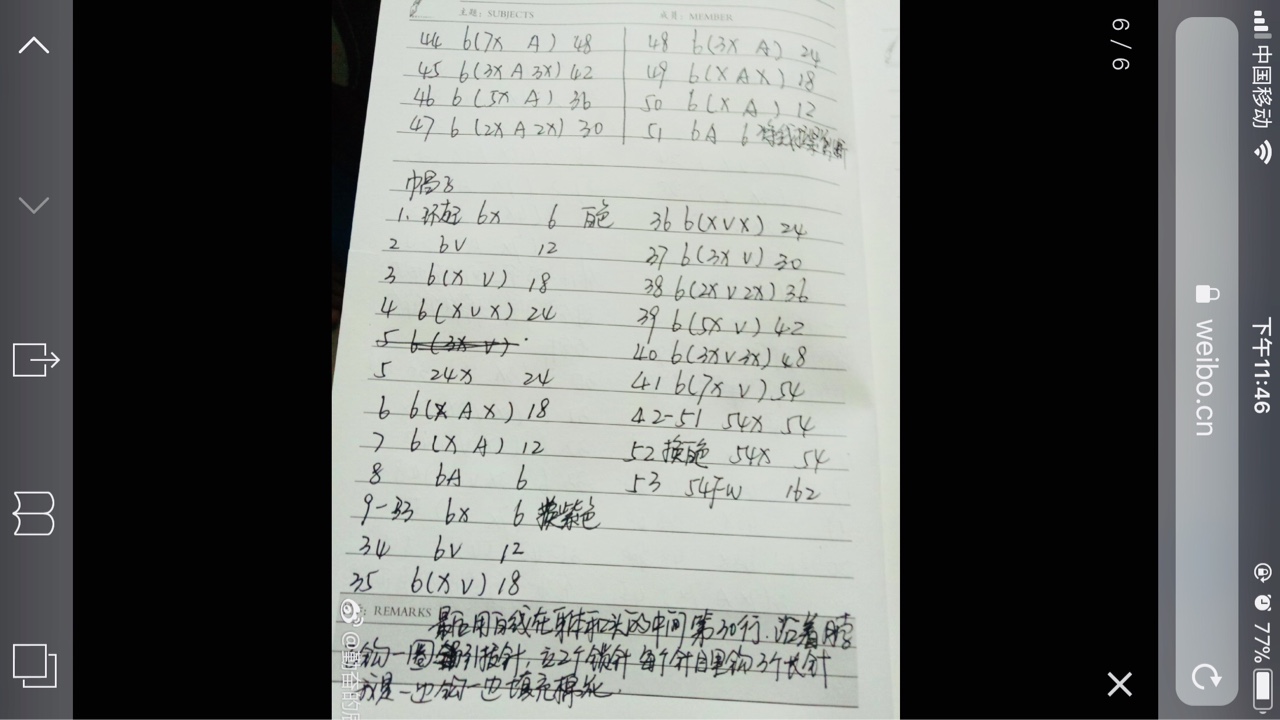 主题: SUBJECTS
成员: MEMBER
44 6(7X A) 48
45 6(3X A 3X) 42
46 6(5X A) 36
47 6(2X A 2X) 30
48 6(3X A) 24
49 6(X A X) 18
50 6(X A) 12
51 6A 6
帽子
1. 环起 6X 6 白色
2 6V 12
3 6(X V) 18
4 6(X V X) 24
5 6(3X V)
5 24X 24
6 6(X A X) 18
7 6(X A) 12
8 6A 6
9-33 6X 6 换紫色
34 6V 12
35 6(X V) 18
36 6(X V X) 24
37 6(3X V) 30
38 6(2X V 2X) 36
39 6(5X V) 42
40 6(3X V 3X) 48
41 6(7X V) 54
42-51 54X 54
52 换白色 54X 54
53 54FW 162
REMARKS
最后用白线在身体和头的中间第30行.沿着脖
钩一圈引拔针,立2个锁针 每个针目里钩3个长针
我是一边钩一边填充棉花.
6 / 6
中国移动
下午11:46
77%
weibo.cn